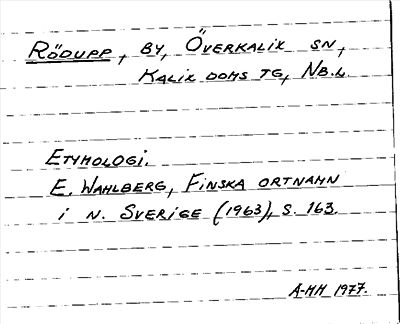 RÖDUPP, BY, ÖVERKALIX SN,
KALIX DOMS TG, NB.L.
ETYMOLOGI.
E. WAHLBERG, FINSKA ORTNAMN
i N. SVERIGE (1963), S. 163.
A-MH 1977.